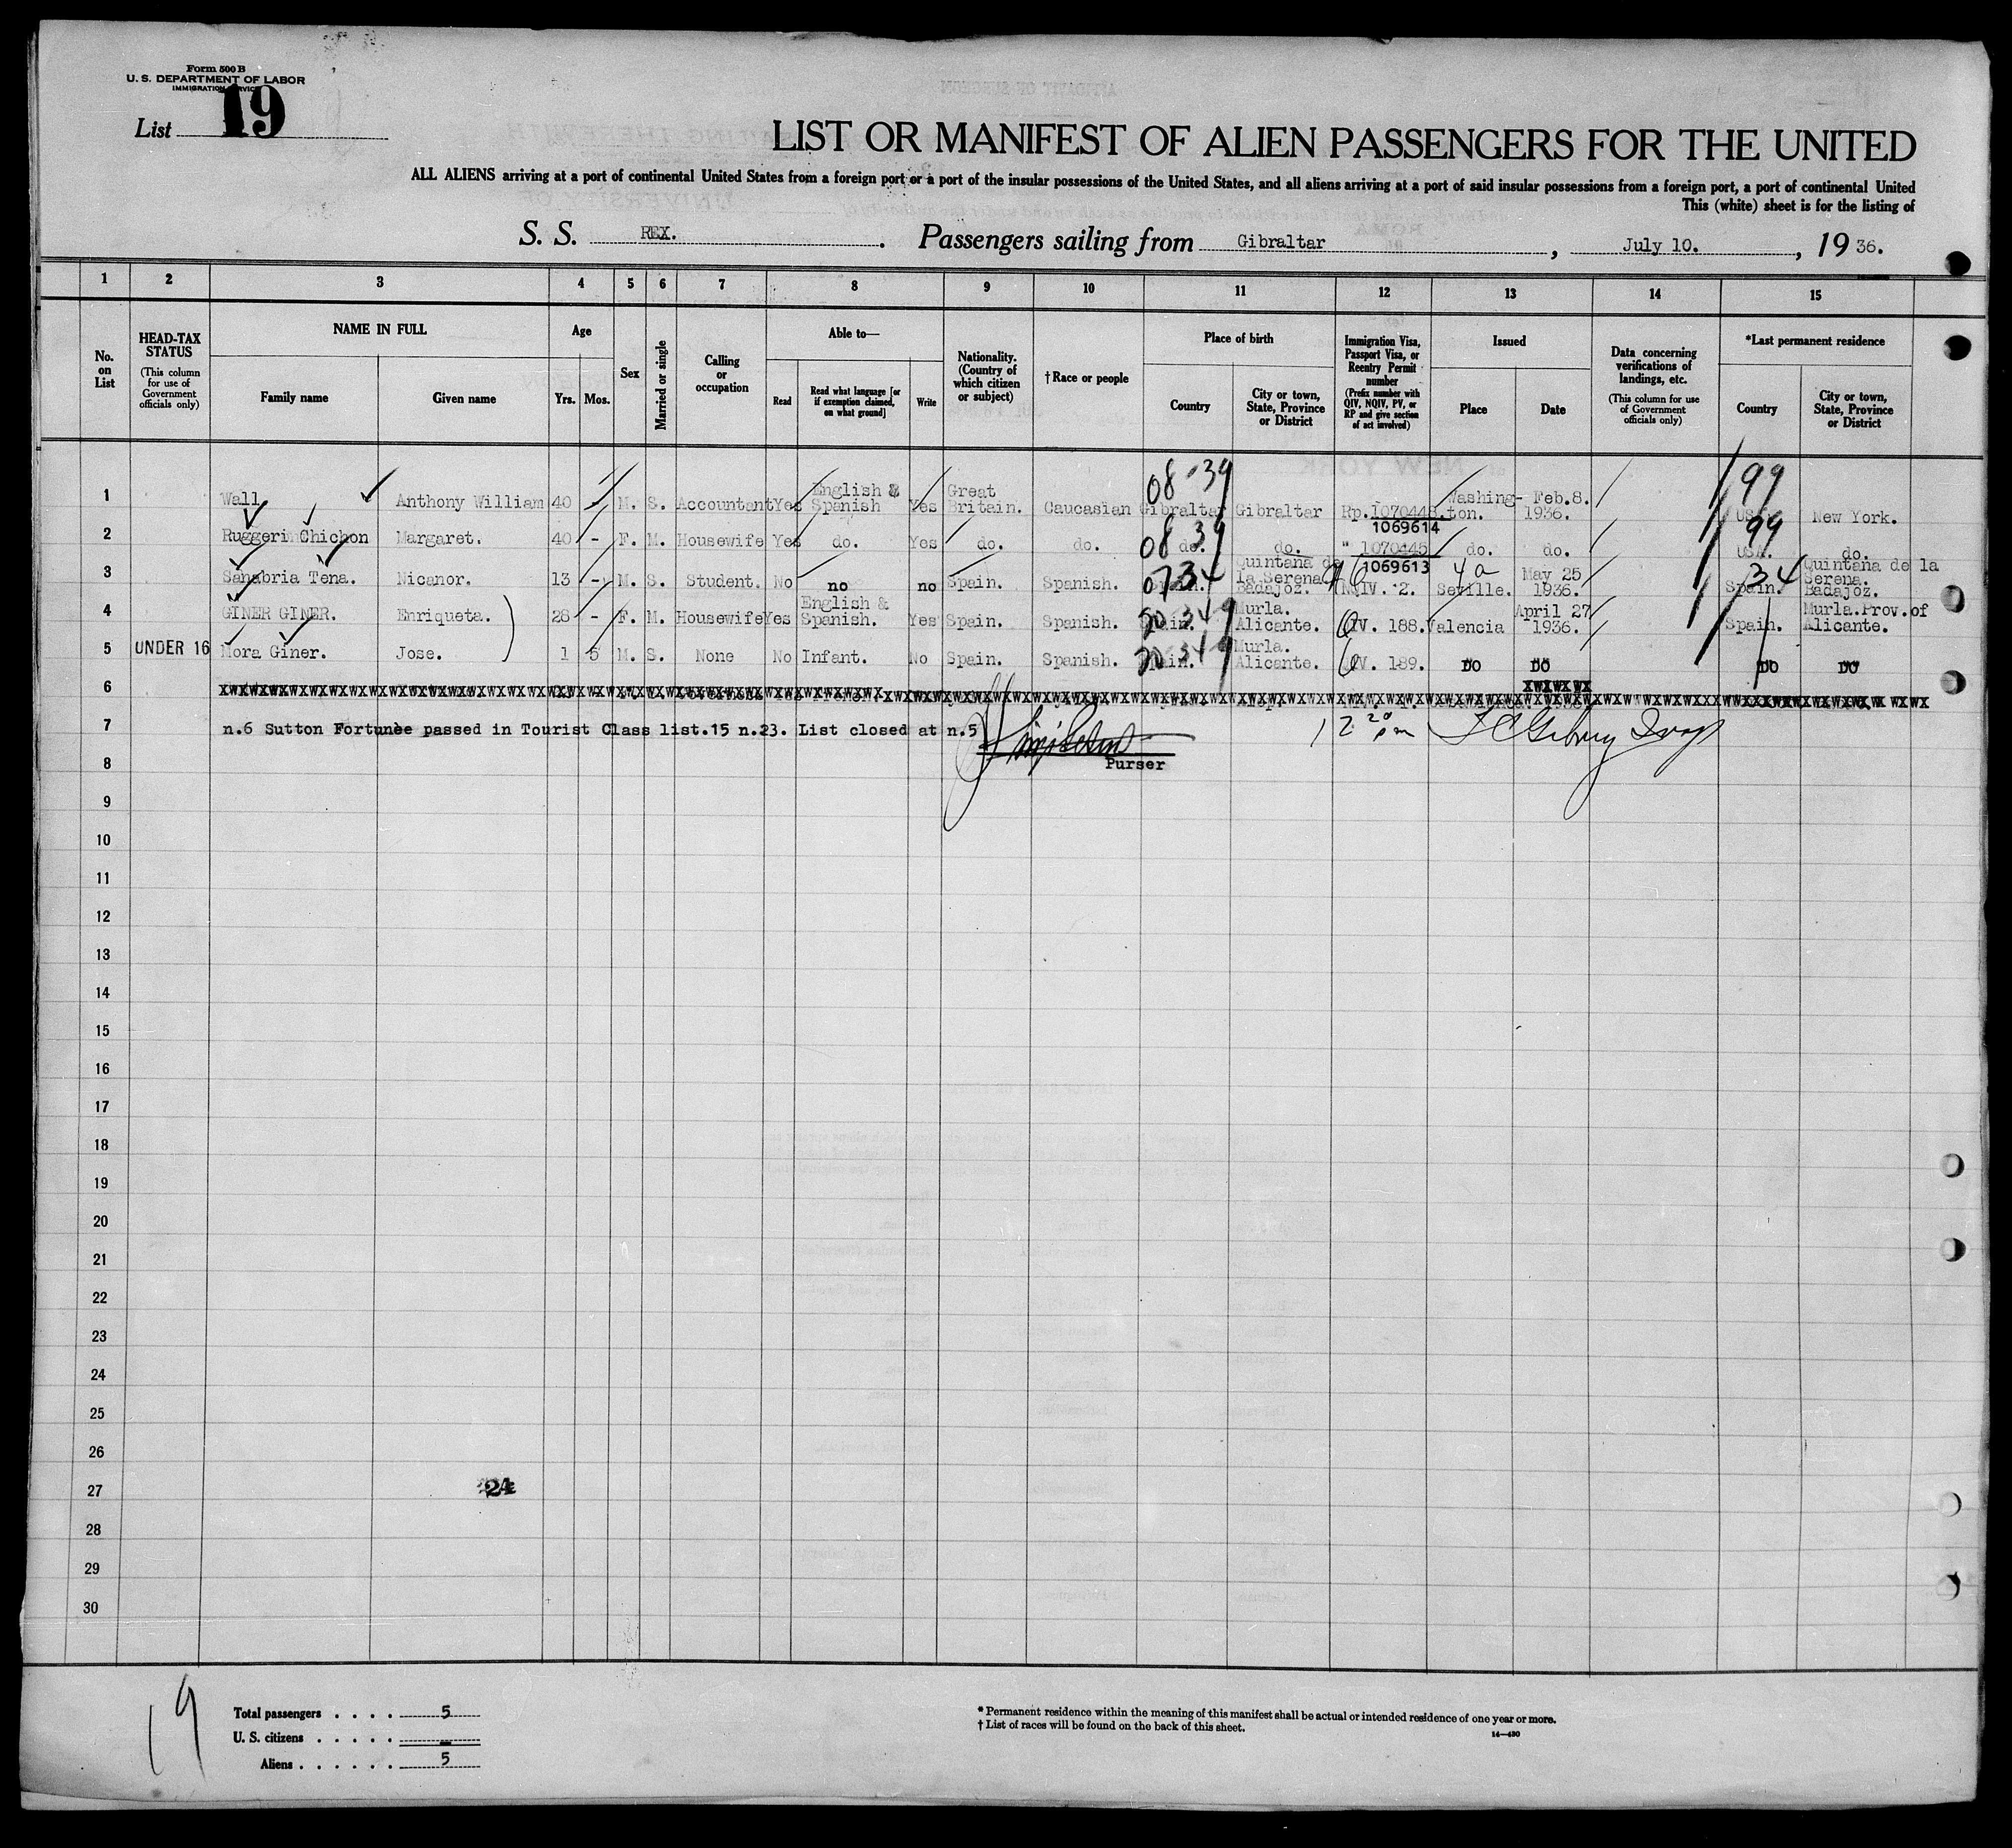 Form 500 B
U. S. DEPARTMENT OF LABOR
IMMIGRATION SERVICE
List 19
LIST OR MANIFEST OF ALIEN PASSENGERS FOR THE UNITED
ALL ALIENS arriving at a port of continental United States from a foreign port or a port of the insular possessions of the United States, and all aliens arriving at a port of said insular possessions from a foreign port, a port of continental United
This (white) sheet is for the listing of
S. S. REX. Passengers sailing from Gibraltar, July 10., 19 36.
1 2 3 4 5 6 7 8 9 10 11 12 13 14 15
No. on List
HEAD-TAX STATUS (This column for use of Government officials only)
NAME IN FULL
Family name
Given name
Age
Yrs. Mos.
Sex
Married or single
Calling or occupation
Able to—
Read
Read what language [or if exemption claimed, on what ground]
Write
Nationality. (Country of which citizen or subject)
† Race or people
Place of birth
Country
City or town, State, Province or District
Immigration Visa, Passport Visa, or Reentry Permit number (Prefix number with QIV, NQIV, PV, or RP and give section of act involved)
Issued
Place
Date
Data concerning verifications of landings, etc. (This column for use of Government officials only)
*Last permanent residence
Country
City or town, State, Province or District
1 Wall Anthony William 40 - M. S. Accountant Yes English & Spanish Yes Great Britain. Caucasian 08-39 Gibraltar Gibraltar Rp. 1070448. 1069614 Washington. Feb.8. 1936. 99 USA New York.
2 Ruggeri Chichon Margaret. 40 - F. M. Housewife Yes do. Yes do. do. 08 39 do. do. " 1070445 1069613 do. do. 99 USA. do.
3 Sanabria Tena. Nicanor. 13 - M. S. Student. No no no Spain. Spanish. 0734 Quintana de la Serena Badajoz. NQIV. 2. 4a Seville. May 25 1936. 34 Spain. Quintana de la Serena. Badajoz.
4 GINER GINER. Enriqueta. 28 - F. M. Housewife Yes English & Spanish. Yes Spain. Spanish. Spain. Murla. Alicante. QIV. 188. Valencia April 27 1936. Spain. Murla. Prov. of Alicante.
5 UNDER 16 Mora Giner. Jose. 1 5 M. S. None No Infant. No Spain. Spanish. Spain. Murla. Alicante. QIV. 189. DO DO DO DO
6
7 n.6 Sutton Fortunèe passed in Tourist Class list.15 n.23. List closed at n.5
Purser
12 20 pm
8
9
10
11
12
13
14
15
16
17
18
19
20
21
22
23
24
25
26
27 24
28
29
30
19
Total passengers . . . . 5
U. S. citizens . . . . . -
Aliens . . . . . . 5
* Permanent residence within the meaning of this manifest shall be actual or intended residence of one year or more.
† List of races will be found on the back of this sheet.
14—430